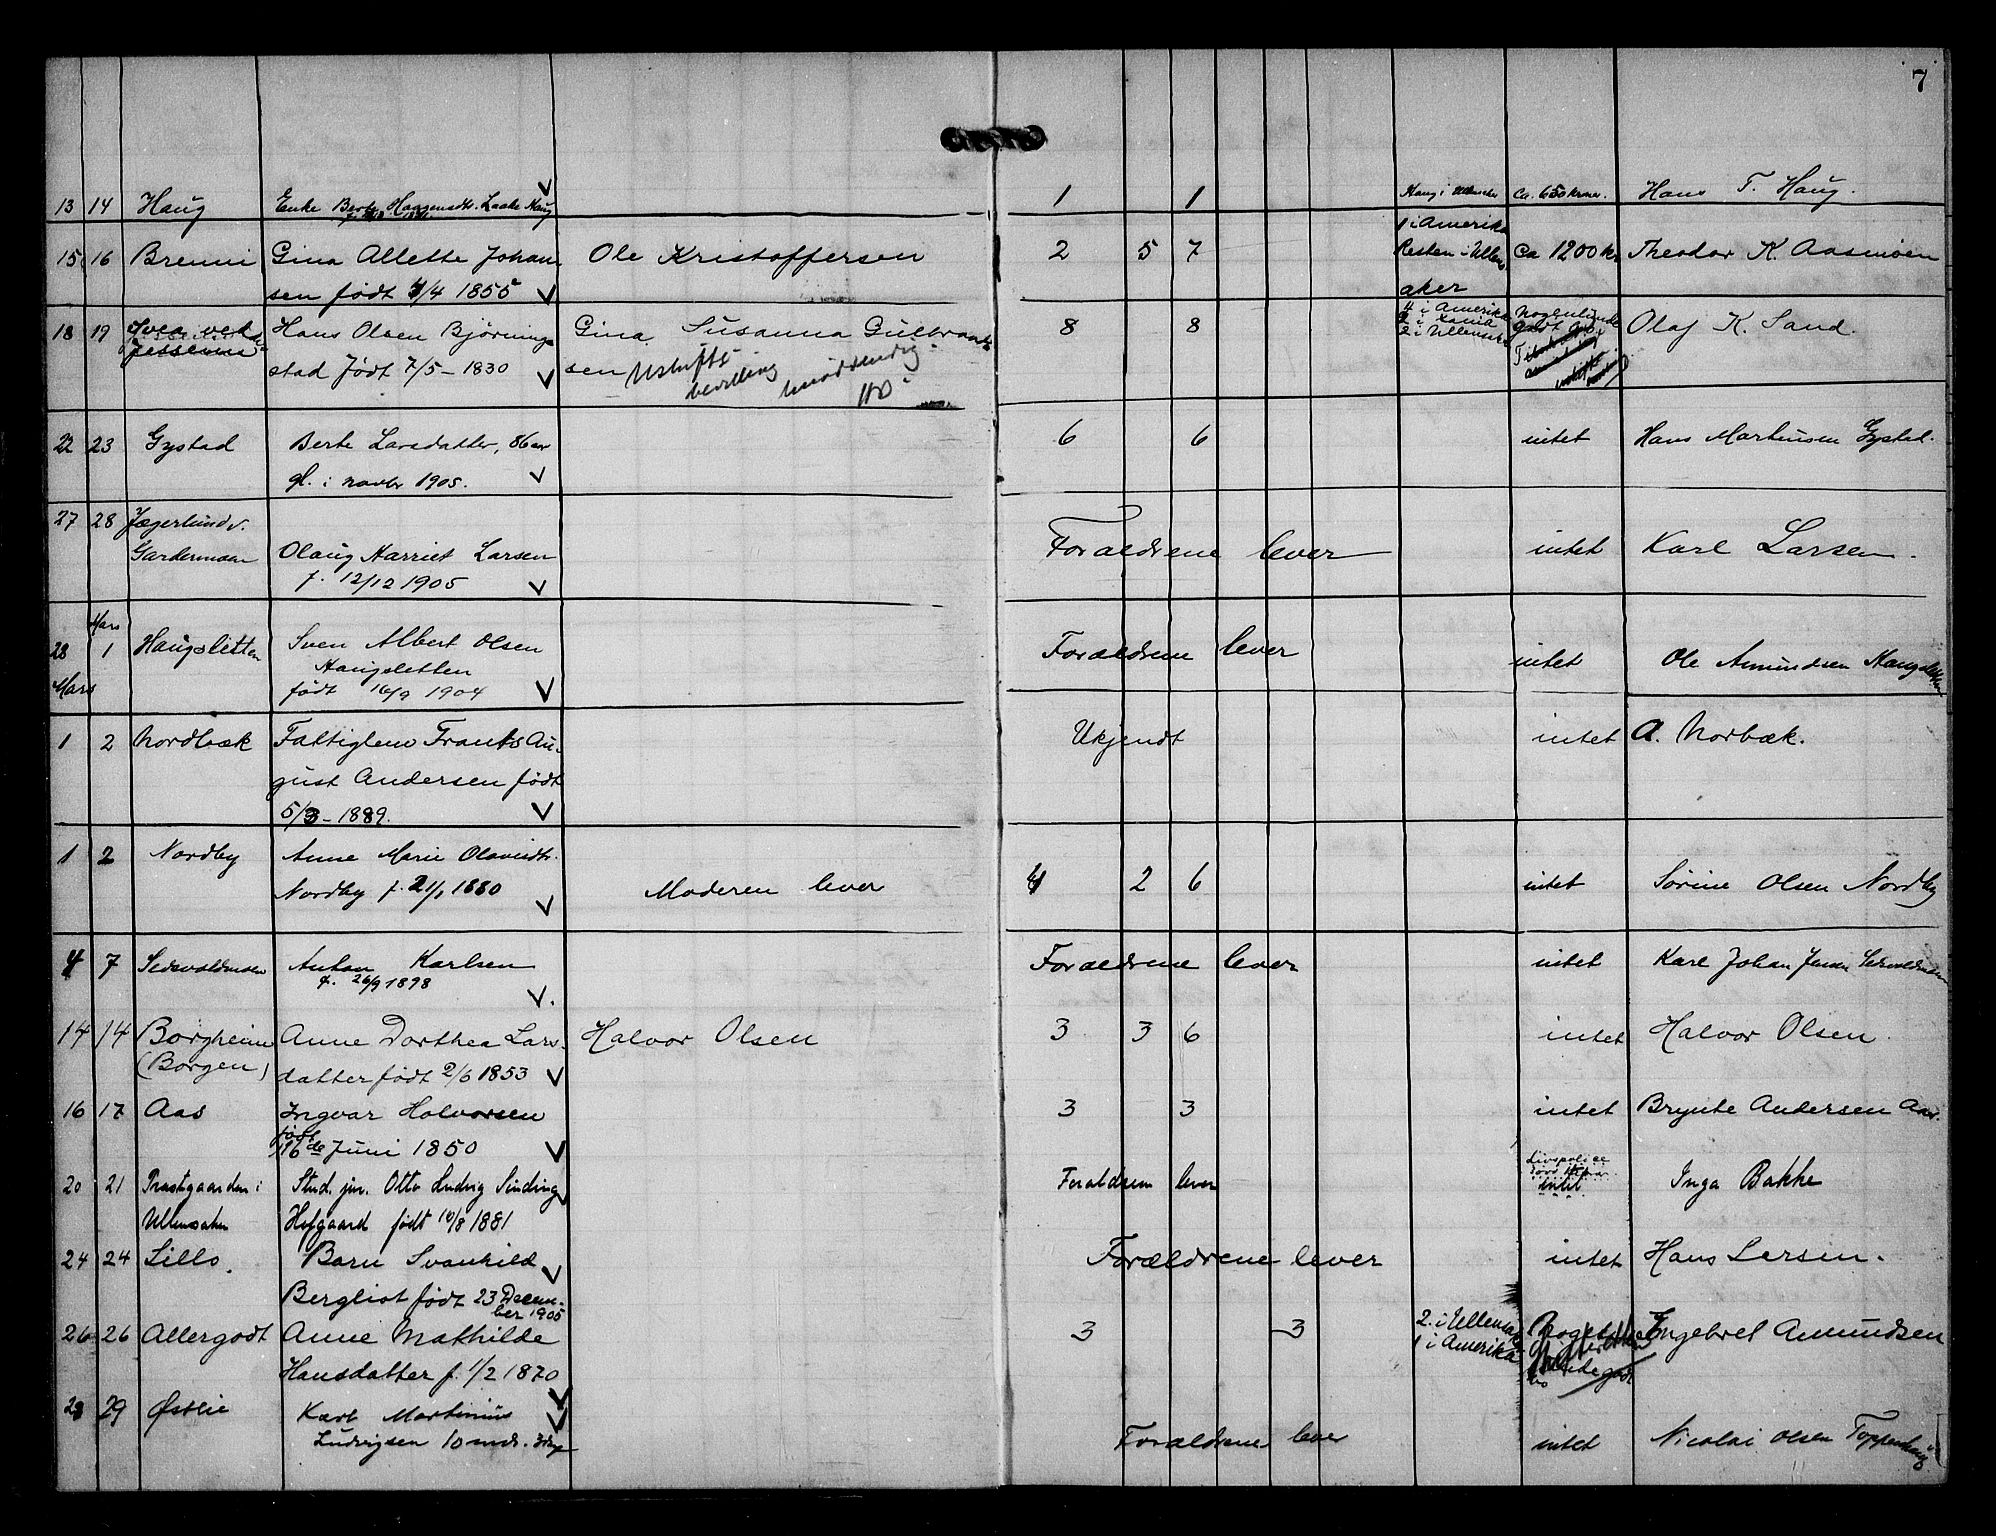 7
13 14 Haug Enke Berte Haagensdtr. Laake Haug 1 1 Haug i Ullensaker Ca. 650 kroner. Hans T. Haug.
15 16 Brenni Gina Allette Johan Ole Kristoffersen 2 5 7 1 i Amerika Resten i Ullens Ca 1200 kr Theodor K. Aasmoen
sen født 4/4 1855 aker
18 19 Hans Olsen Bjørning Gina Susanna Gulbrandt 8 8 4 i Amerika Nogenlunde Olaf K. Sand.
Jessenni stad født 7/5 - 1830 sen Uskifte 2 i Ullensaker godt
bevilling unødvendig
22 23 Gystad Berte Larsdatter, 86 aar 6 6 intet Hans Martinsen Gystad.
gl. i novbr 1905.
27 28 Jægerlund v.
Gardermoen Olaug Harriet Larsen Forældrene lever intet Karl Larsen.
f. 12/12 1905
Mars
28 1 Haugsletten Sven Albert Olsen Forældrene lever intet Ole Amundsen Haugsletten
Haugsletten
Mars født 16/9 1904
1 2 Nordbæk Fattiglem Frants Au- Ukjendt intet A. Norbæk.
gust Andersen født
5/3 - 1889.
1 2 Nordby Anne Marie Olavudtr.
Nordby f. 21/1 1880 Moderen lever 4 2 6 intet Sørine Olsen Nordby
4 7 Sedvoldmoen Anton Karlsen Forældrene lever intet Karl Johan Jensen Sedvoldmoen
f. 26/9 1898
14 14 Borgheim Anne Dorthea Lars- Halvor Olsen 3 3 6 intet Halvor Olsen.
(Borgen) datter født 2/6 1853
16 17 Aas Ingvar Halvorsen 3 3 intet Brynte Andersen Aas.
født
16de Juni 1850
Livspolise
20 21 Præstgaarden i Stud. jur. Otto Ludvig Sinding Forældrene lever intet Inga Bakke
Ullensaker Hofgaard født 10/8 1881
24 24 Sillo. Barn Svanhild Forældrene lever intet Hans Larsen.
Bergliot født 23 Decem-
ber 1905
26 26 Allergodt Anne Mathilde 3 3 2 i Ullensaker Engebret Amundsen
1 i Amerika
Hansdatter f. 1/2 1870
28 29 Østlie Karl Martinius Forældrene lever intet Nicolai Olsen Toppenhaug
Ludvigsen 10 mdr. 3 dage